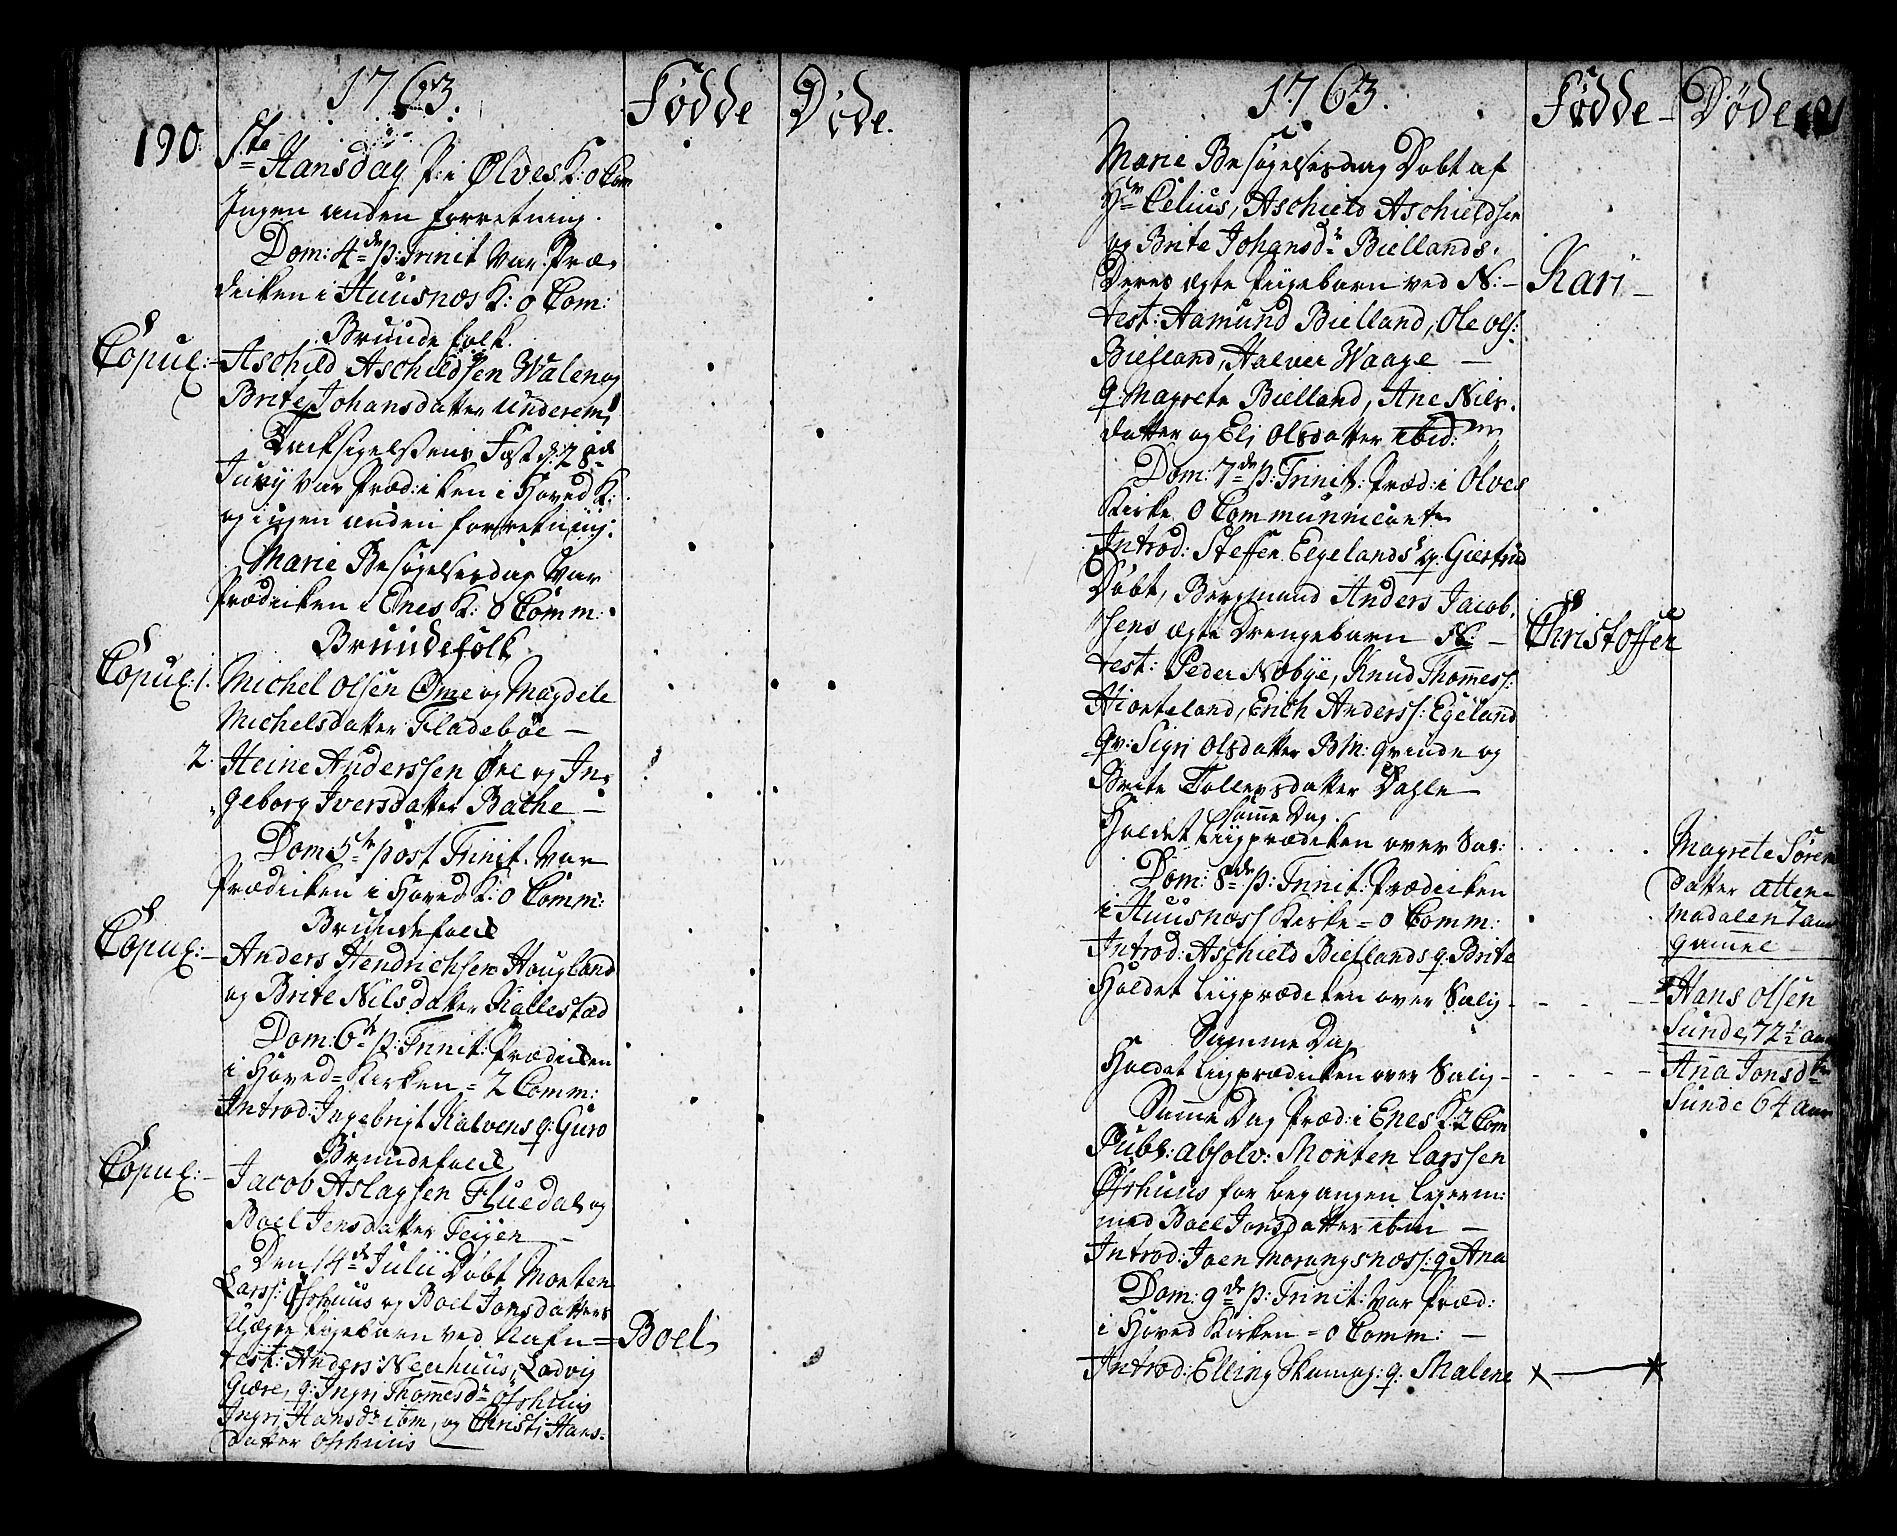 190
1763.
Fødde
Døde.
Ste Hansdag Præ. Ølves K: 0 Com
Ingen anden forretning.
Dom: 4de p: Trinit Var Præ-
diken i Huusnæs K: 0 Com:
Brundefolk.
Copul:- Aschild Aschildsen Walen og
Brite Johansdatter Underem!
Tacksigelsens Fæst d: 28de
Juny Var Præd:iken i Hoved K:
og ingen anden forretning:
Marie Besøgelsesdag Var
Prædicken i Enes K: 0 Comm:
Brundefolk
Copul: 1. Michel Olsen Øme og Magdele
Michelsdatter Fladebøe -
2. Heine Anderssen Øre og In-
geborg Iversdatter Bathe -
Dom: 5te post Trinit. Var
Prædicken i Hoved K: 0 Comm:
Brundefolk
Copul:- Anders Hendrichsen Hougland
og Brite Nilsdatter Kallestad
Dom: 6te p: Trinit: Prædicken
i Hoved-Kirken = 2 Comm:
Introd: Ingebrigt Halvens q: Guro
Brundefolk
Copul:- Jacob Aslagsen Fluedal og
Boel Jensdatter Teigen -
Den 14de Julii Døbt Monten
Larss: Øshuus og Boel Jonsdatters
Uægte Pigebarn ved Nafn = Boel
test: Anders Neuhuus, Ladvig
Giære, q: Ingri Thomesdr Øshuus
Ingri Hansdr ibm, og Christi Hans-
datter Oshuus
1763.
Fødde
Døde 191
Marie Besøgelsesdag Døbt af
Hr Celius, Aschield Aschieldsen
og Brite Johansdr Biellands
Deres ægte Piigebarn ved N: - Kari -
test: Aamund Bielland, Ole Ols:
Bielland, Halver Waage -
q: Magrete Bielland, Ane Nils-
datter og Eli Olsdatter ibid:
Dom: 7de p: Trinit: Præd: i Ølves
Kirke 0 Communicanter
Introd: Steffen Eegelands q: Giertrud
Døbt, Bergmand Anders Jacob-
sens ægte Drengebarn N: - Christoffer
test: Peder Nobye, Knud Thomess:
Hionteland, Erich Anderss: Egeland
qv: Sigri Olsdatter Bm: qvinde og
Brite Tollevsdatter Dagle
Samme Dag.
Holdet Liigprædicken over Sal: Magrete Sørens
datter Atter-
madalen 7 aar
gamel
Dom: 8de p: Trinit: Prædicken
i Huusnæss Kirke = 0 Comm:
Introd: Aschield Biellands q: Brite
Holdet Liigprædicken over Salig - Hans Olsen
Sunde, 72½ aar
Samme Dag
Holdet Liigprædicken over Salig - Aña Jonsdtr
Sunde 64 aar
Same Dag Præd: i Enes K: 2 Com
Publ: absolv: Monten Larssen
Øshuus for begangen Lejerm:
med Boel Jonsdatter ibm -
Introd: Joen Morangsnæss: q Ana
Dom: 9de p: Trinit: Var Præd:
i Hoved Kirken = 0 Comm: -
Introd: Elling Skamag: q. Malene